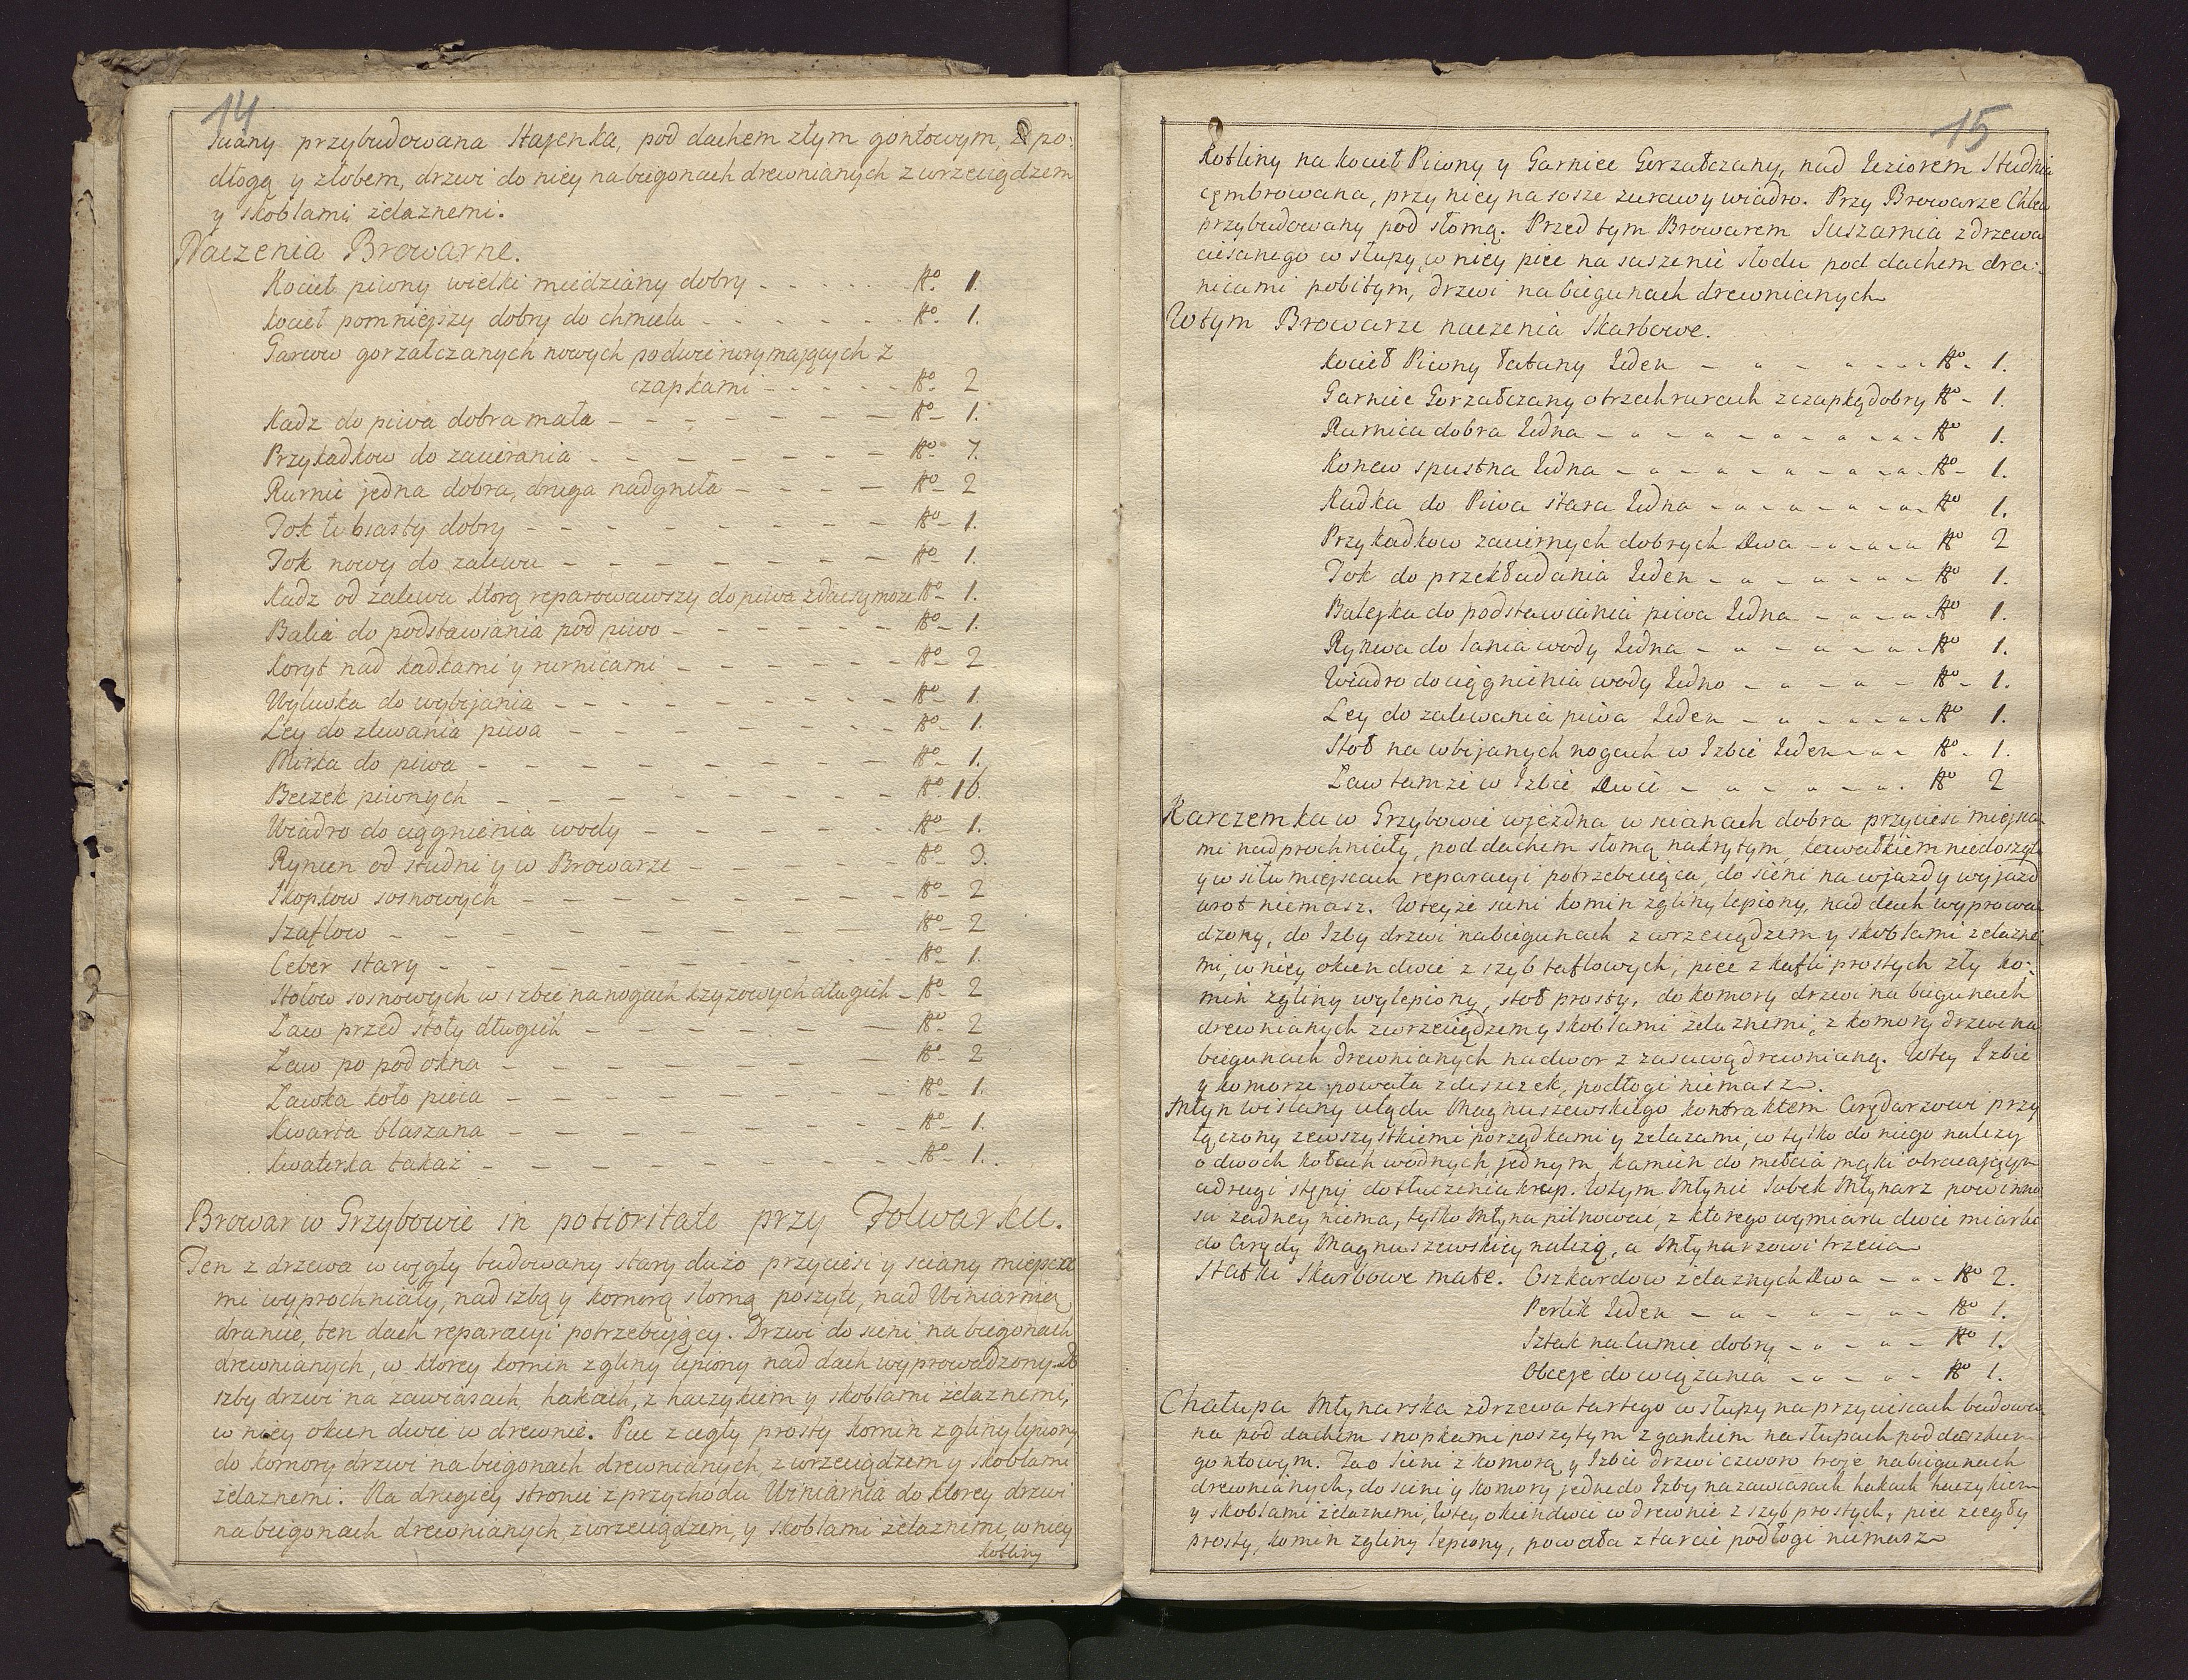 14
sciany przybudowana Stajenka, pod dachem złym gontowym, z po:
dłogą y złobem, drzwi do niey na biegonach drewnianych z wrzeciądzem
y skoblami żelaznemi.
Naczenia Browarne.
Kocieł piwny wielki miedziany dobry - - - - - Nº. 1.
Kocieł pomnieyszy dobry do chmielu - - - - - Nº. 1.
Garcow gorzałczanych nowych po dwie rury mających z
czapkami - - - - - Nº. 2
Kadz do piwa dobra mała - - - - - Nº - 1.
Przykadkow do zacierania - - - - - Nº - 7.
Rurnic jedna dobra, druga nadgniła - - - - Nº - 2
Tok łubiasty dobry - - - - - Nº - 1.
Tok nowy do zalewu - - - - - Nº - 1.
Kadz od zalewu ktorą reparowawszy do piwa zdac się może Nº - 1.
Balia do podstawiania pod piwo - - - - - Nº - 1.
Koryt nad kadkami y rurnicami - - - - - Nº - 2
Wylewka do wybijania - - - - - Nº - 1.
Ley do zlewania piwa - - - - - Nº - 1.
Mirka do piwa - - - - - Nº - 1.
Beczek piwnych - - - - - Nº. 16.
Wiadro do ciągnienia wody - - - - - Nº - 1.
Rynien od studni y w Browarze - - - - - Nº - 3.
Skopkow sosnowych - - - - - Nº - 2
Szaflow - - - - - Nº - 2
Ceber stary - - - - - Nº - 1.
Stołow sosnowych w izbie na nogach krzyzowych długich - Nº - 2
Ław przed stoły długich - - - - - Nº - 2
Ław po pod okna - - - - - Nº - 2
Ławka koło pieca - - - - - Nº - 1.
Kwarta blaszana - - - - - Nº - 1.
Kwaterka takaż - - - - - Nº - 1.
Browar w Grzybowie in potioritate przy Folwarku.
Ten z drzewa w węgły budowany stary dużo przyciesi y sciany miejsca
mi wyprochniały, nad izbą y komorą słomą poszyte, nad Winiarnią
dranice, ten dach reparacyi potrzebujący. Drzwi do sieni na biegonach
drewnianych, w ktorey komin z gliny lepiony nad dach wyprowadzony. Do
izby drzwi na zawiasach, hakach, z haczykiem y skoblami żelaznemi,
w niey okien dwie w drewnie. Piec z cegły prosty komin z gliny lepiony
do komory drzwi na biegonach drewnianych, z wrzeciądzem y skoblami
żelaznemi. Na drugiey stronie z przychodu Winiarnia do ktorey drzwi
na biegonach drewnianych, z wrzeciądzem, y skoblami żelaznemi, w niey
kotliny
15
Kotliny na kocieł Piwny y Garniec Gorzałczany, nad Jeziorem Studnia
cembrowana, przy niey na sosze zuraw y wiadro. Przy Browarze Chlew
przybudowany pod słomą. Przed tym Browarem Suszarnia z drzewa
ciesanego w słupy, w niey piec na suszenie słodu pod dachem dra:
nicami pobitym, drzwi na biegunach drewnianych
W tym Browarze naczenia Skarbowe.
Kocieł Piwny łatany Jeden - - - - Nº - 1.
Garniec Gorzałczany o trzech rurach z czapką dobry Nº - 1.
Rurnica dobra Jedna - - - - Nº 1.
Konew spustna Jedna - - - - Nº - 1.
Kadka do Piwa stara Jedna - - - - Nº 1.
Przykadkow zaciernych dobrych Dwa - - - - Nº 2
Tok do przekładania Jeden - - - - Nº 1.
Baleyka do podstawiania piwa Jedna - - - - Nº 1.
Rynwa do lania wody Jedna - - - - Nº 1.
Wiadro do ciągnienia wody Jedno - - - - Nº - 1.
Ley do zalewania piwa Jeden - - - - Nº 1.
Stoł na wbijanych nogach w Izbie Jeden - - - Nº - 1.
Ław tamże w Izbie Dwie - - - - Nº 2
Karczemka w Grzybowie wjezdna w scianach dobra przyciesi miejsca
mi nadprochniały, pod dachem słomą nakrytym, kawałkiem niedoszyta
y w siłu miejscach reparacyi potrzebująca, do sieni na wjazd y wyjazd
wrot niemasz. W teyże sieni komin z gliny lepiony, nad dach wyprowa
dzony, do Izby drzwi na biegunach z wrzeciądzem y skoblami zelazne
mi, w niey okien dwie z szyb taflowych, piec z kafli prostych zły ko:
min z gliny wylepiony, stoł prosty, do komory drzwi na biegunach
drewnianych z wrzeciądzem y skoblami żelaznemi, z komory drzwi na
biegunach drewnianych na dwor z zasuwą drewnianą. W tey Izbie
y komorze powała z deszczek, podłogi niemasz.
Młyn wislany ulądu Magnuszewskiego kontraktem Arędarzowi przy
łączony ze wszystkiemi porządkami y zelazami, w tylko do niego nalezy
o dwoch kołach wodnych, jednym, kamien do mełcia mąki obracającym
a drugi stępy do tłuczenia krup. W tym Młynie Sobek Młynarz powinno
sci żadney niema, tylko Młyna pilnować, z ktorego wymiaru dwie miarki
do Arędy Magnuszewskiey nalezą, a Młynarzowi trzecia
Statki Skarbowe małe. Oszkardow żelaznych Dwa - - Nº 2.
Perlik Jeden - - - - Nº 1.
Sztak na lumie dobry - - - - Nº 1.
Obceje do wiązania - - - - Nº 1.
Chałupa Młynarska z drzewa tartego w słupy na przyciesiach budowa
na pod dachem snopkami poszytym z gankiem na słupach pod daszkiem
gontowym. Do Sieni z komorą y Izbie drzwi czworo troje na biegunach
drewnianych, do sieni y komory jedne do Izby na zawiasach hakach haczykiem
y skoblami żelaznemi, W tey okien dwie w drewnie z szyb prostych, piec z cegły
prosty, komin z gliny lepiony, powała z tarcic podłogi niemasz